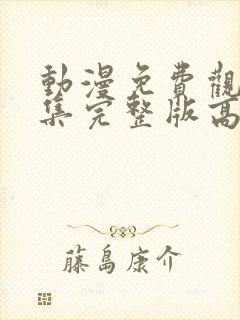 動漫免費觀
集完整版高
藤島康介